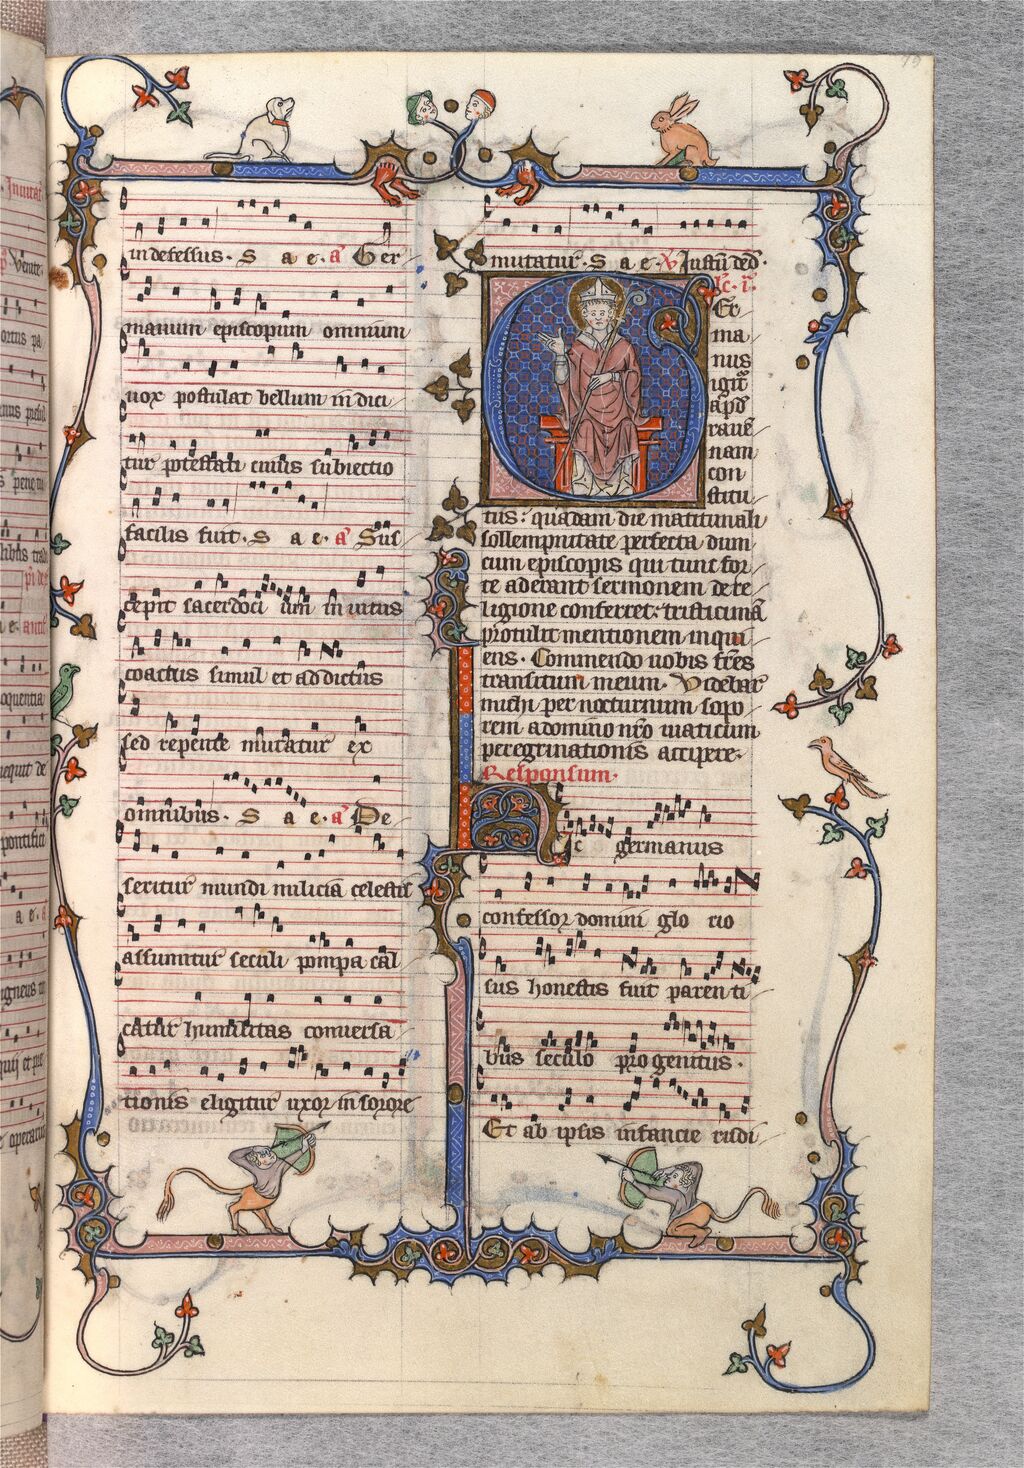 indefessus · S a e · a Ger
manum episcopum omnium
uox postulat bellum indici
tur potestati ciuilis subiectio
facilis fuit · S a e · a Sus
cepit sacerdoci um inuitus
coactus simul et addictus
sed repente mutatur ex
omnibus · S a e · a De
seritur mundi milicia celestis
assumitur seculi pompa cal
catur humilitas conuersa
tionis eligitur uxor in sorore
mutatur · S a e · V Justũ ded̃ ·
lc̃ · i ·
Er
ma
nus
igit̃
apd̃
rauẽ
nam
con
stitu
tus : quadam die matitunali
sollempnitate perfecta dum
cum episcopis qui tunc for
te aderant sermonem de re
ligione conferret : tristicimã
protulit mentionem inqui
ens · Commendo uobis fr̃es
transitum meum · Videbar
michi per nocturnum sopo
rem a domino nr̃o uiaticum
peregrinationis accipere ·
Responsum ·
Hic germanus
confessor domini glo rio
sus honestis fuit paren ti
bus seculo progenitus ·
Et ab ipsis infancie rudi